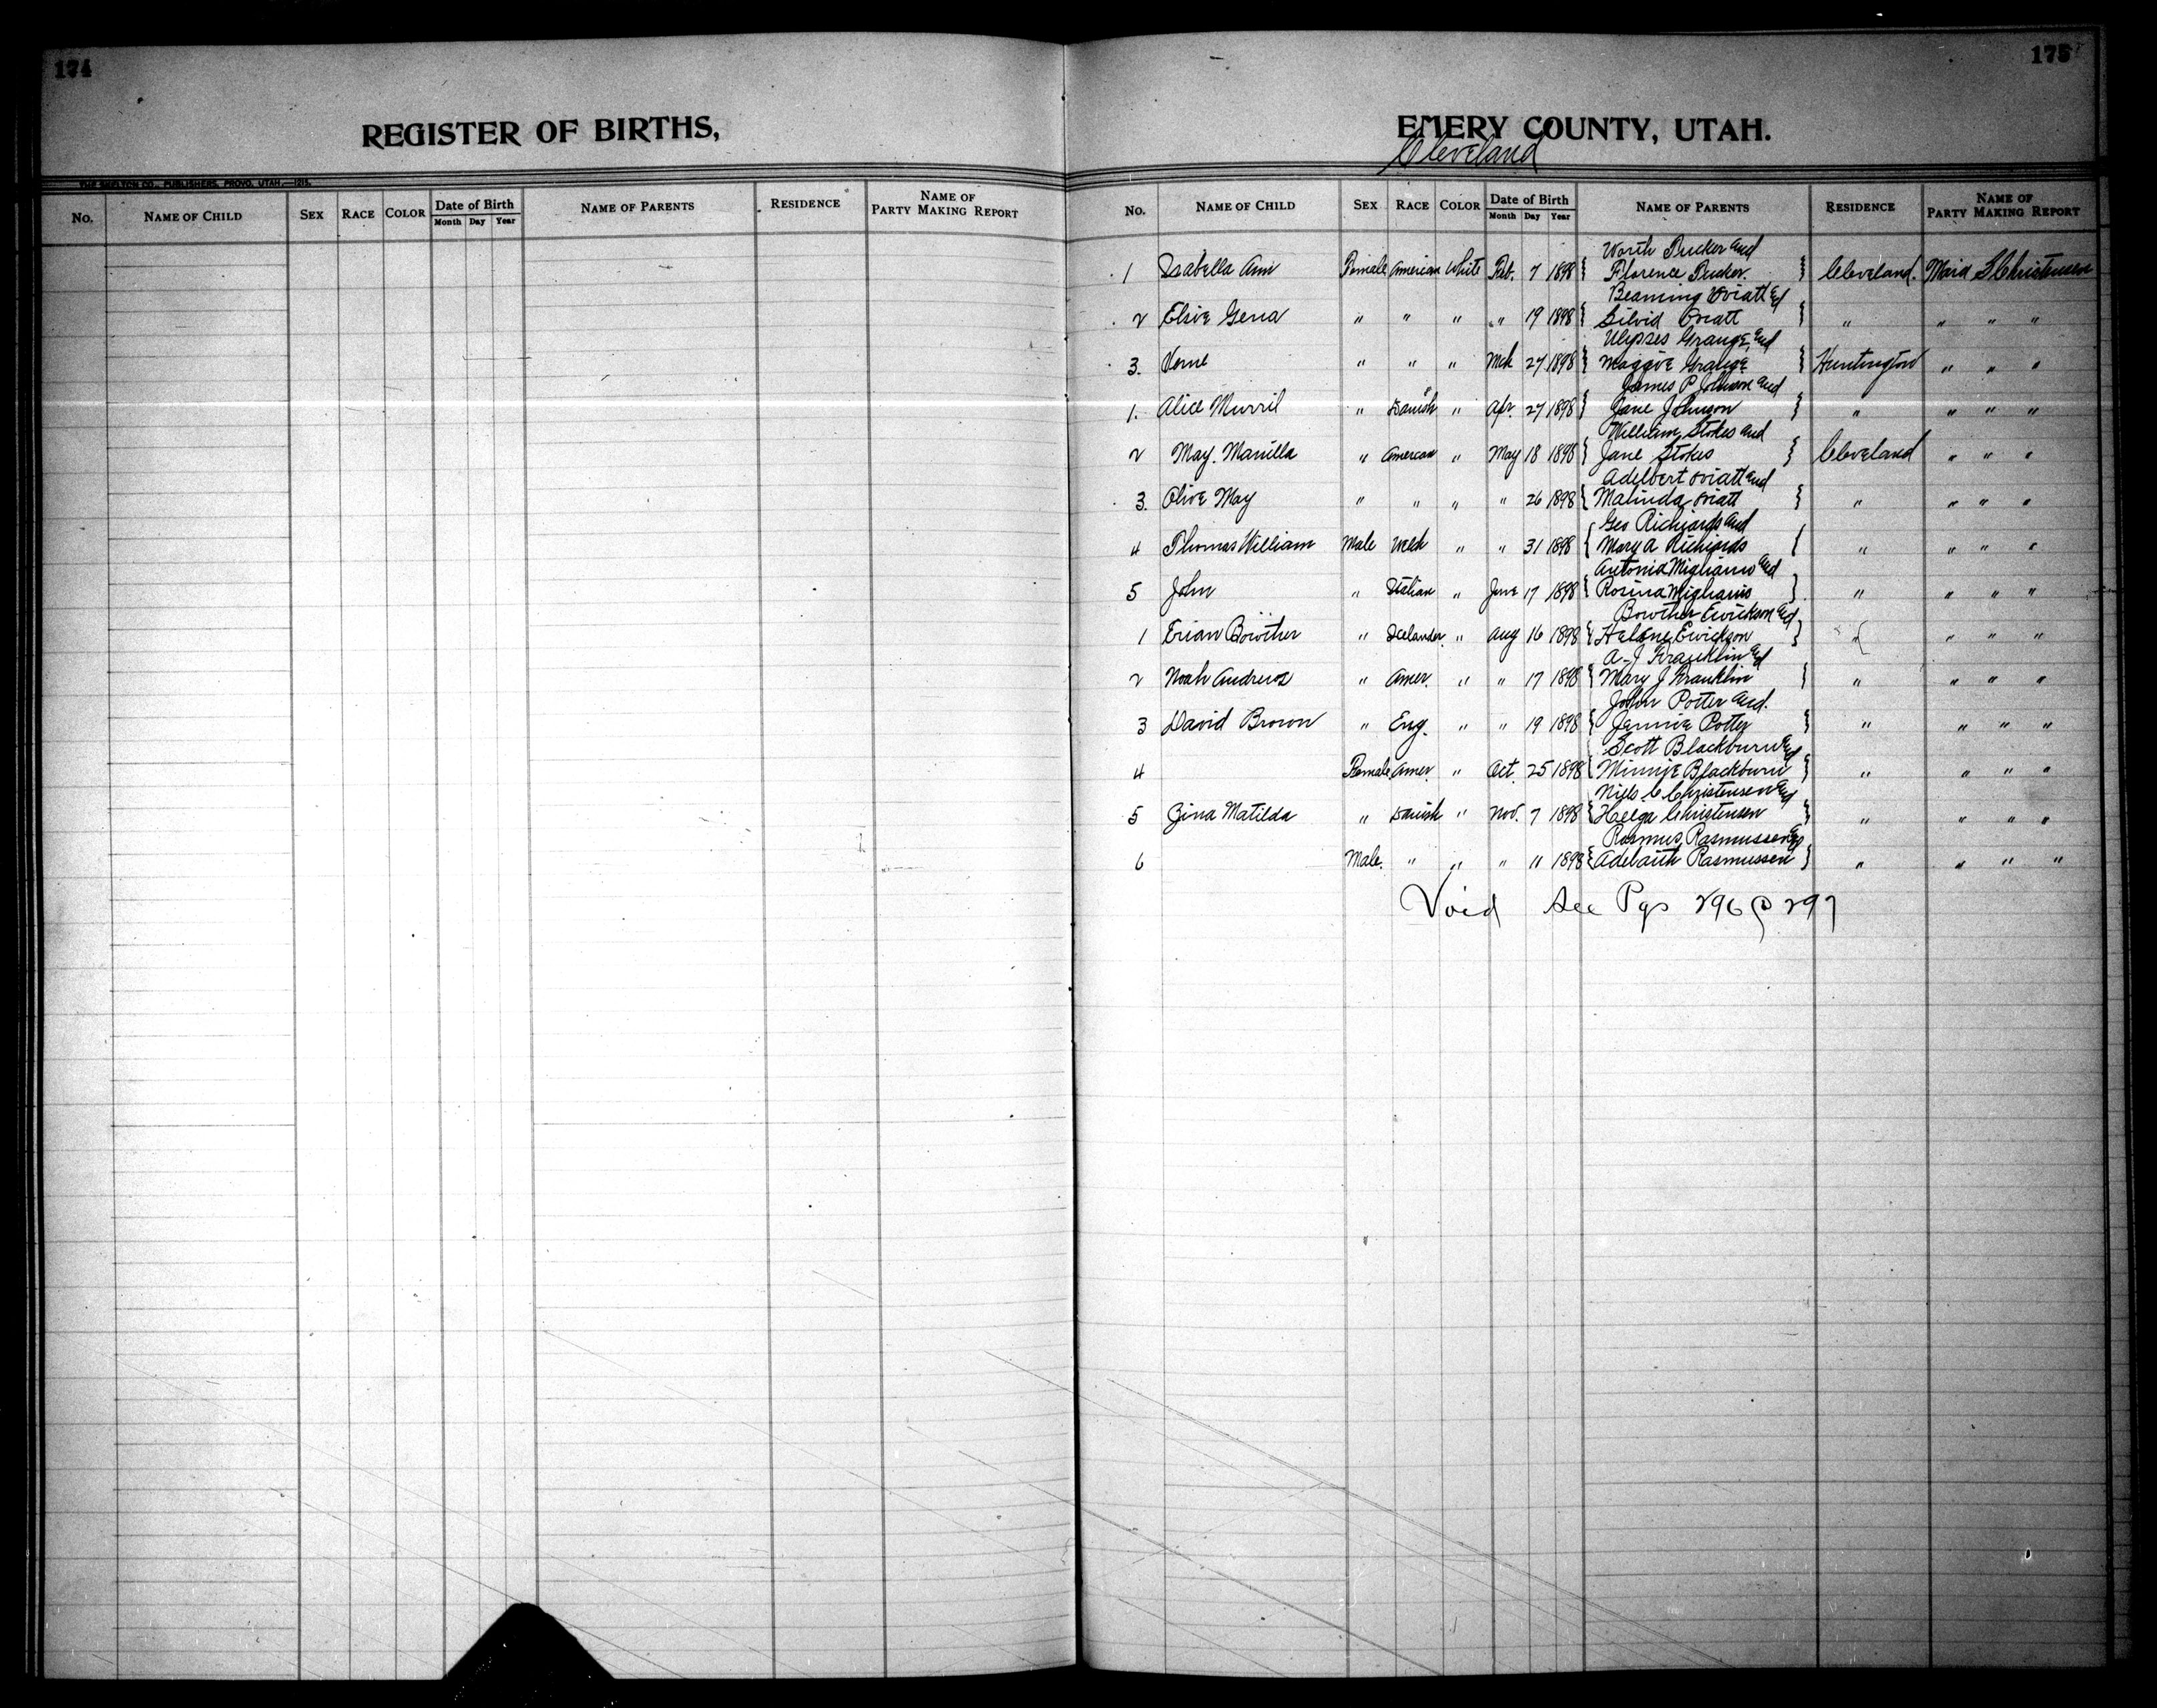 174
REGISTER OF BIRTHS,
THE SKELTON CO., PUBLISHERS, PROVO, UTAH.—1215.
No. NAME OF CHILD SEX RACE COLOR Date of Birth Month Day Year NAME OF PARENTS RESIDENCE NAME OF PARTY MAKING REPORT
175
EMERY COUNTY, UTAH.
Cleveland
No. NAME OF CHILD SEX RACE COLOR Date of Birth Month Day Year NAME OF PARENTS RESIDENCE NAME OF PARTY MAKING REPORT
Worth Tucker and
1 Isabella Ann Female American White Feb. 7 1898 { Florence Tucker. } Cleveland. Maid S Christensen
Beaming Oviatt and
2 Elsie Gena " " " " 19 1898 { Silvid Oviatt } " " " "
Ulysses Grange and
3. Verne " " " Mch 27 1898 { Maggie Grange } Huntington " " "
James P Johnson and
1. Alice Murril " Danish " Apr 27 1898 } Jane Johnson } " " " "
William Stokes and
2 May. Manilla " American " May 18 1898 } Jane Stokes } Cleveland " " "
Adelbert Oviatt and
3. Olive May " " " " 26 1898 { Malinda Oviatt } " " " "
Geo Richards and
4 Thomas William Male Welch " " 31 1898 { Mary A Richards { " " " "
Antonio Migliario and
5 John " Italian " June 17 1898 { Rosina Migliario } " " " "
Bowther Ewickson and
1 Erian Bowther " Icelander " Aug 16 1898 { Helene Ewickson } " " " "
A. J Franklin and
2 Noah Andrew " Amer. " " 17 1898 { Mary J Franklin } " " " "
John Potter and.
3 David Brown " Eng. " " 19 1898 { Jennie Potter } " " " "
Scott Blackburn and
4 Female Amer. " Oct. 25 1898 { Minnie Blackburn } " " " "
Niels C Christensen and
5 Zina Matilda " Danish " Nov. 7 1898 { Helga Christensen } " " " "
Rasmus Rasmussen and
6 Male. " " " 11 1898 { Adebaith Rasmussen } " " " "
Void See Pgs 296 @ 297